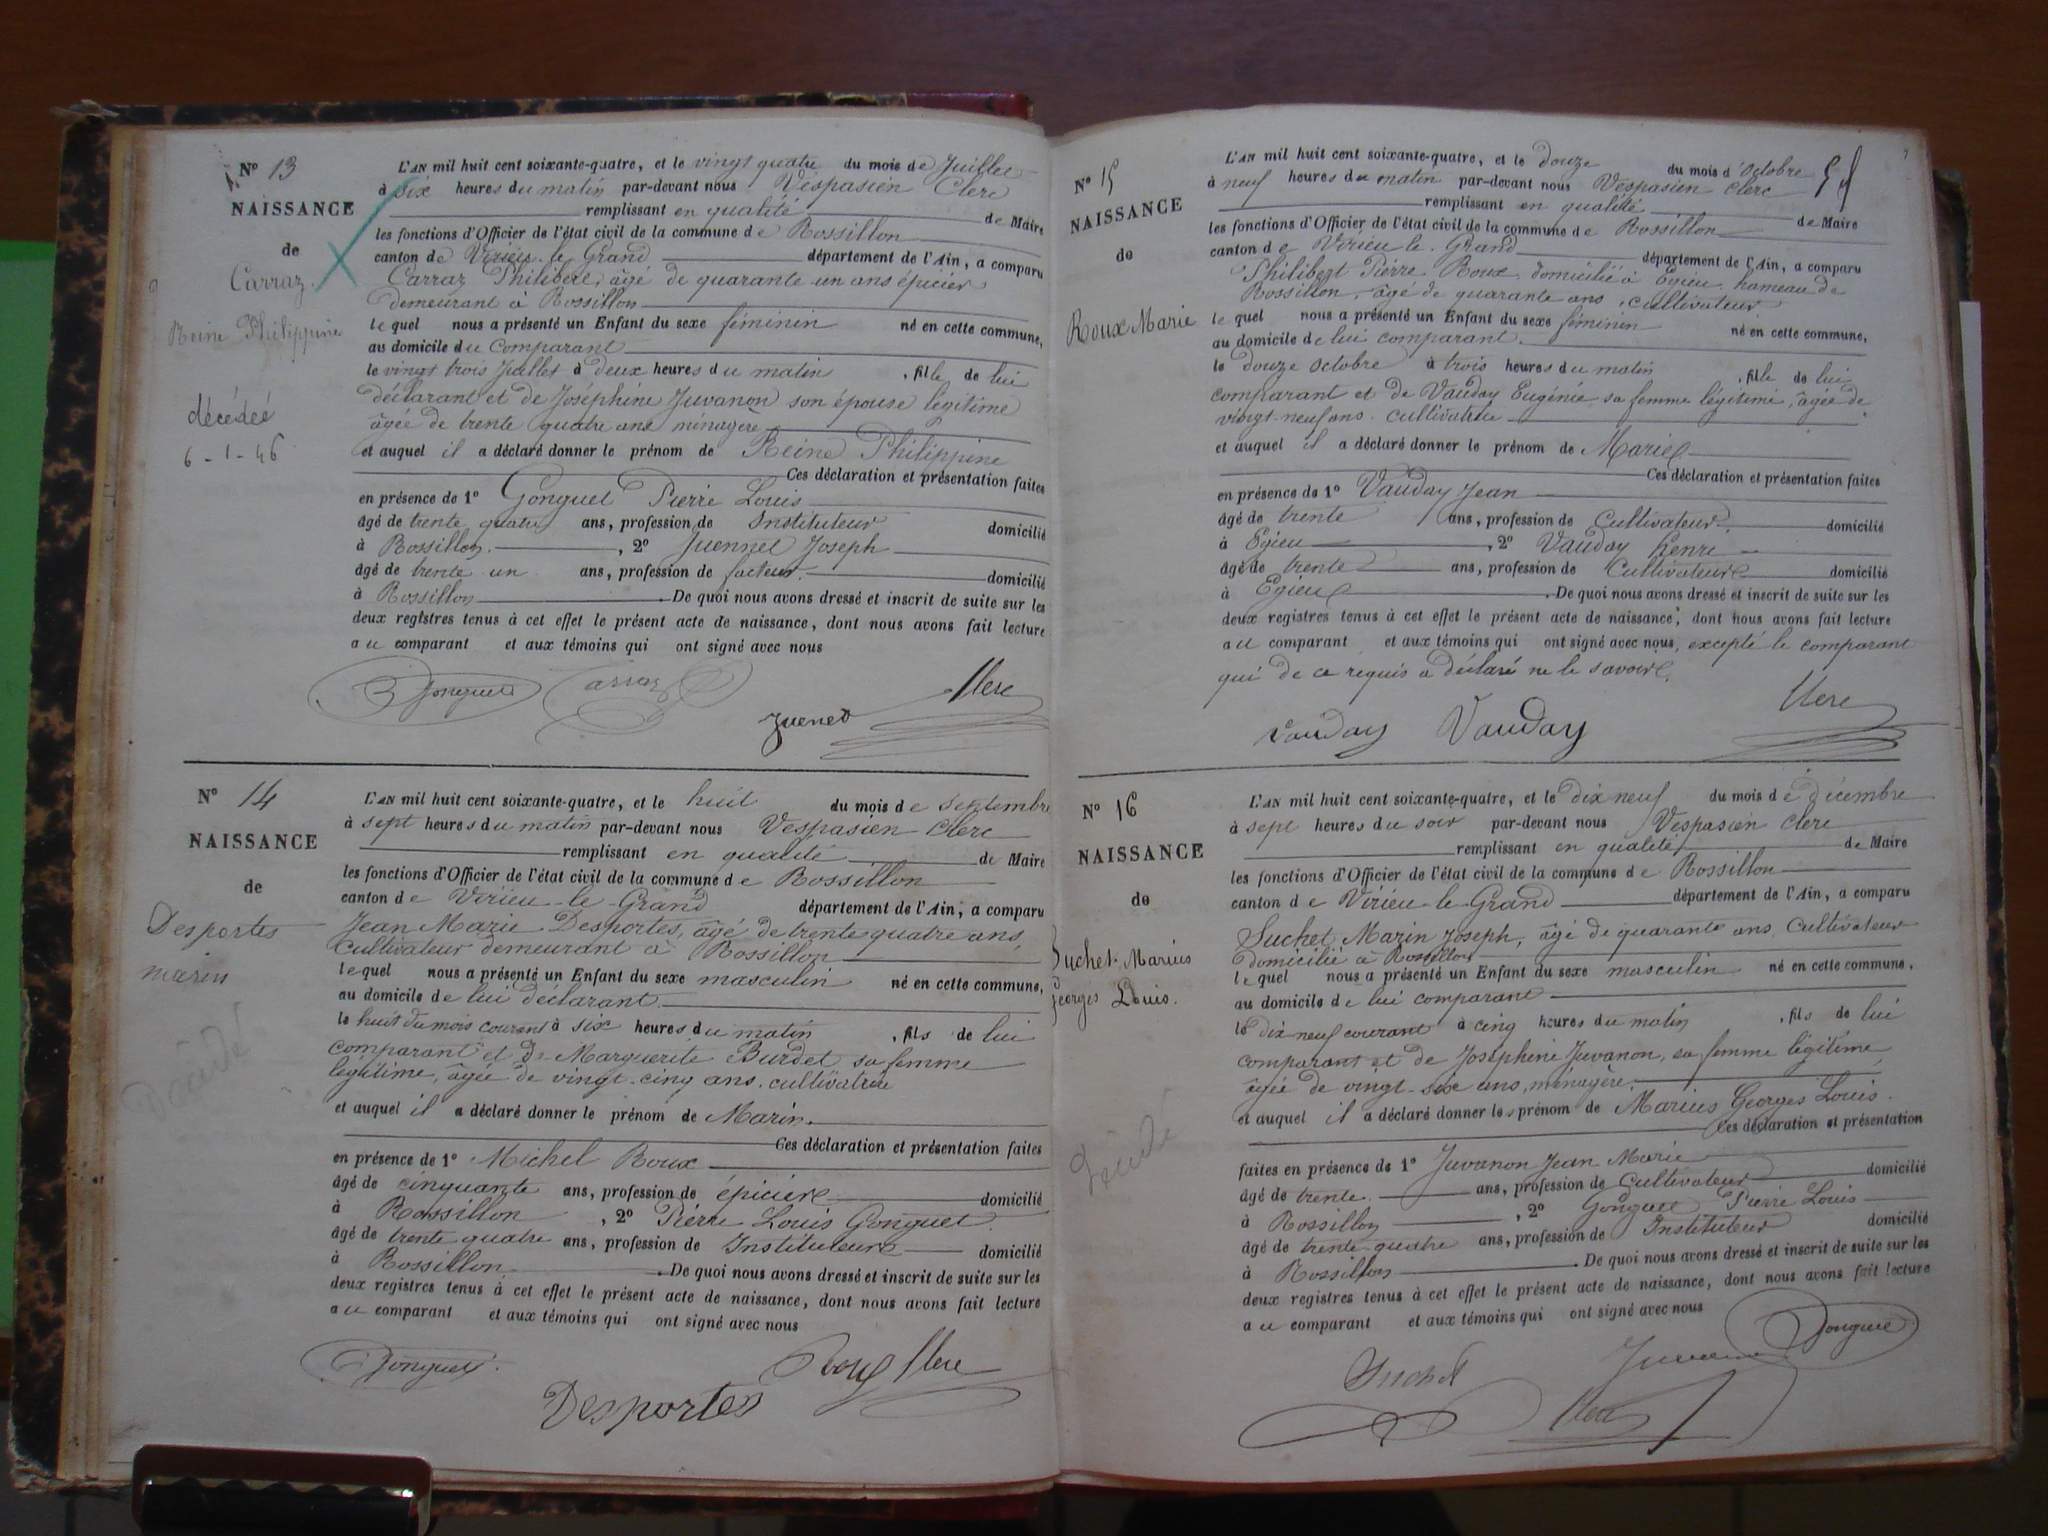 N° 13
NAISSANCE
de
Carraz
Reine Philippine
décédée
6-1-46
L'AN mil huit cent soixante-quatre, et le vingt quatre du mois de Juillet
à six heures du matin par-devant nous Vespasien Clerc
remplissant en qualité de Maire
les fonctions d'Officier de l'état civil de la commune de Rossillon
canton de Virieu-le-Grand département de l'Ain, a comparu
Carraz Philibert, âgé de quarante un ans épicier
demeurant à Rossillon
lequel nous a présenté un Enfant du sexe féminin né en cette commune,
au domicile du Comparant
le vingt trois Juillet à deux heures du matin, fille de lui
déclarant et de Joséphine Juvanon son épouse légitime
âgée de trente quatre ans ménagère
et auquel il a déclaré donner le prénom de Reine Philippine
Ces déclaration et présentation faites
en présence de 1° Gonguet Pierre Louis
âgé de trente quatre ans, profession de Instituteur domicilié
à Rossillon, 2° Juennet Joseph
âgé de trente un ans, profession de facteur domicilié
à Rossillon. De quoi nous avons dressé et inscrit de suite sur les
deux registres tenus à cet effet le présent acte de naissance, dont nous avons fait lecture
au comparant et aux témoins qui ont signé avec nous
Gonguet Carraz Clerc
Juenet
N° 14
NAISSANCE
de
Desportes
marin
Décédé
L'AN mil huit cent soixante-quatre, et le huit du mois de Septembre
à sept heures du matin par-devant nous Vespasien Clerc
remplissant en qualité de Maire
les fonctions d'Officier de l'état civil de la commune de Rossillon
canton de Virieu-le-Grand département de l'Ain, a comparu
Jean Marie Desportes, âgé de trente quatre ans,
Cultivateur demeurant à Rossillon
lequel nous a présenté un Enfant du sexe masculin né en cette commune,
au domicile de lui déclarant
le huit du mois courant à six heures du matin, fils de lui
comparant et de Marguerite Burdet sa femme
légitime, âgée de vingt-cinq ans. cultivatrice
et auquel il a déclaré donner le prénom de Marin.
Ces déclaration et présentation faites
en présence de 1° Michel Roux
âgé de cinquante ans, profession de épicier domicilié
à Rossillon, 2° Pierre Louis Gonguet
âgé de trente quatre ans, profession de Instituteur domicilié
à Rossillon. De quoi nous avons dressé et inscrit de suite sur les
deux registres tenus à cet effet le présent acte de naissance, dont nous avons fait lecture
au comparant et aux témoins qui ont signé avec nous
Gonguet Roux Clerc
Desportes
N° 15
NAISSANCE
de
Roux Marie
L'AN mil huit cent soixante-quatre, et le douze du mois d'Octobre
à neuf heures du matin par-devant nous Vespasien Clerc
remplissant en qualité de Maire
les fonctions d'Officier de l'état civil de la commune de Rossillon
canton de Virieu-le-Grand département de l'Ain, a comparu
Philibert Pierre Roux domicilié à Egieu hameau de
Rossillon, âgé de quarante ans, cultivateur
lequel nous a présenté un Enfant du sexe féminin né en cette commune,
au domicile de lui comparant.
le douze Octobre à trois heures du matin, fille de lui
comparant et de Vauday Eugénie sa femme légitime, âgée de
vingt-neuf ans. cultivatrice
et auquel il a déclaré donner le prénom de Marie
Ces déclaration et présentation faites
en présence de 1° Vauday Jean
âgé de trente ans, profession de Cultivateur domicilié
à Egieu, 2° Vauday Henri
âgé de trente ans, profession de Cultivateur domicilié
à Egieu. De quoi nous avons dressé et inscrit de suite sur les
deux registres tenus à cet effet le présent acte de naissance, dont nous avons fait lecture
au comparant et aux témoins qui ont signé avec nous, excepté le comparant
qui de ce requis a déclaré ne le savoir.
Vauday Vauday Clerc
N° 16
NAISSANCE
de
Suchet Marius
Georges Louis.
Décédé
L'AN mil huit cent soixante-quatre, et le dix neuf du mois de décembre
à sept heures du soir par-devant nous Vespasien Clerc
remplissant en qualité de Maire
les fonctions d'Officier de l'état civil de la commune de Rossillon
canton de Virieu-le-Grand département de l'Ain, a comparu
Suchet Marin Joseph, âgé de quarante ans, Cultivateur
domicilié à Rossillon
lequel nous a présenté un Enfant du sexe masculin né en cette commune,
au domicile de lui comparant
le dix neuf courant à cinq heures du matin, fils de lui
comparant et de Joséphine Juvanon, sa femme légitime,
âgée de vingt-six ans, ménagère
et auquel il a déclaré donner les prénom de Marius Georges Louis.
Ces déclaration et présentation
faites en présence de 1° Juvanon Jean Marie
âgé de trente ans, profession de Cultivateur domicilié
à Rossillon, 2° Gonguet Pierre Louis
âgé de trente quatre ans, profession de Instituteur domicilié
à Rossillon. De quoi nous avons dressé et inscrit de suite sur les
deux registres tenus à cet effet le présent acte de naissance, dont nous avons fait lecture
au comparant et aux témoins qui ont signé avec nous
Gonguet
Suchet Juvanon
Clerc